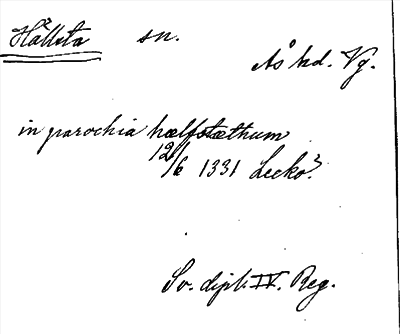 Hällsta sn.
Ås hd. Vg.
in parochia hælfstæthum
12/6 1331 Lecko?
Sv. dipl. IV. Reg.